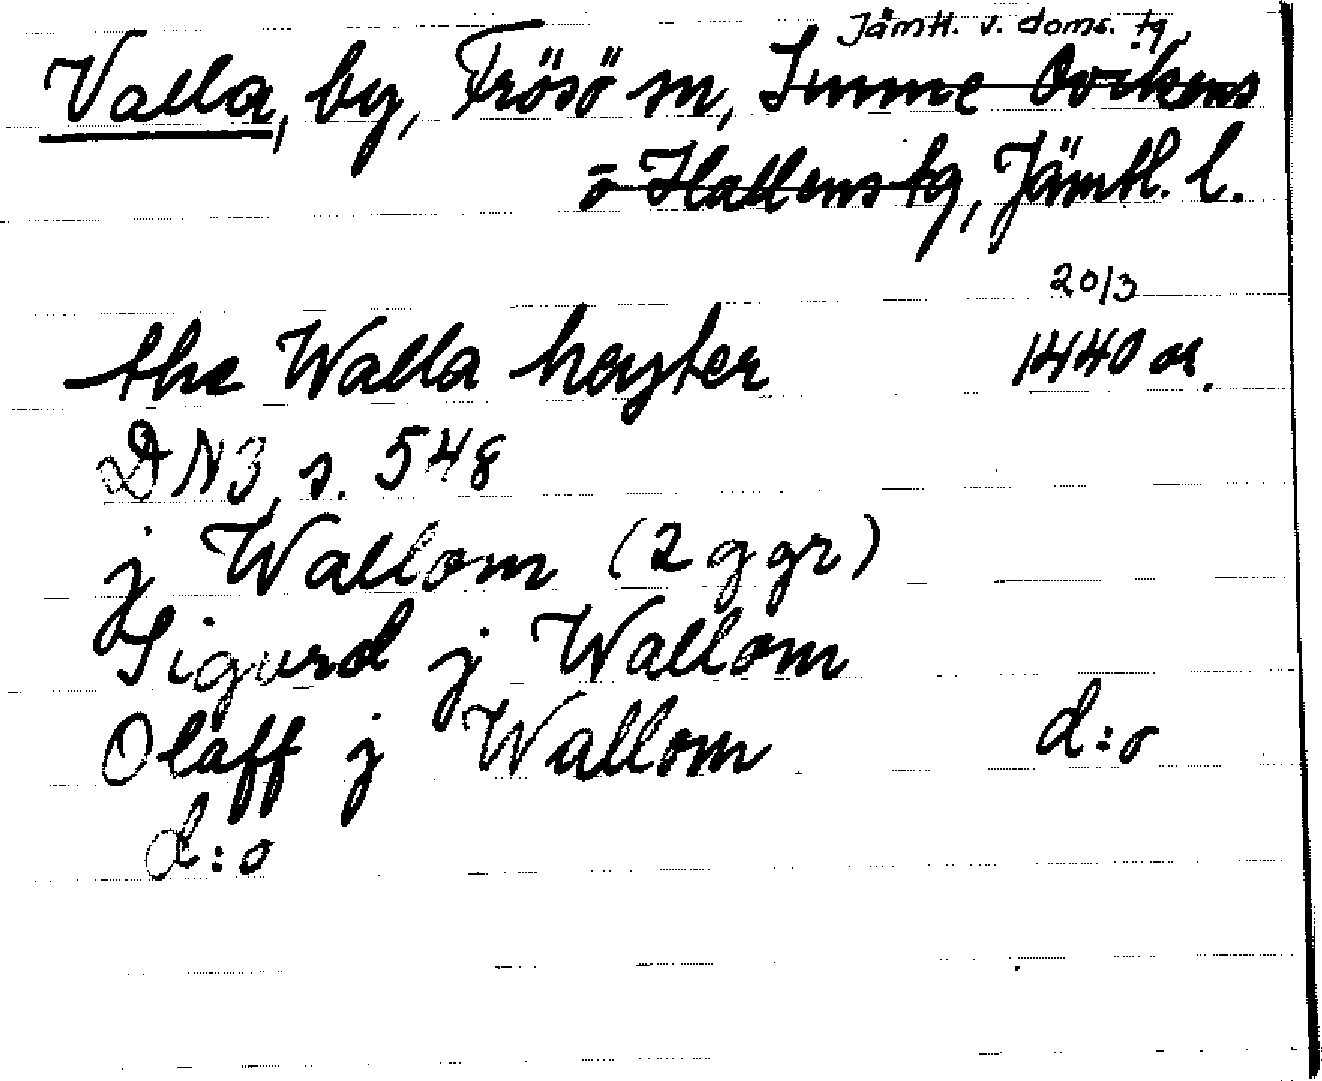 Jämtl. v. doms. tg,
Valla, by, Frösö sn, Sunne Ovikens
o Hallens tg, Jämtl. l.
20/3
the Walla heyter 1440 or.
DN3, s. 548
j Wallom (2 ggr)
Sigurd j Wallom
Olaff j Wallom d:o
d:o